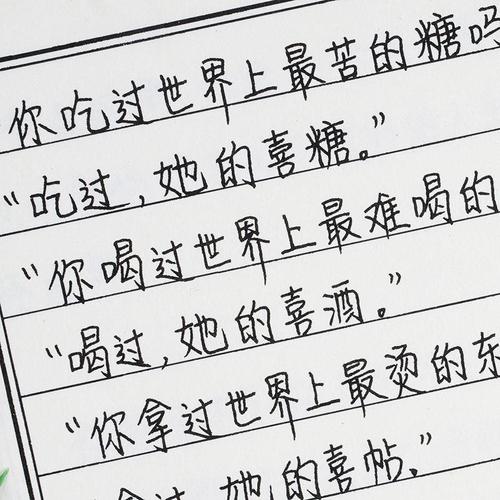 你吃过世界上最苦的糖吗
“吃过,她的喜糖。”
“你喝过世界上最难喝的
“喝过,她的喜酒。”
“你拿过世界上最烫的东
拿过,她的喜帖。”